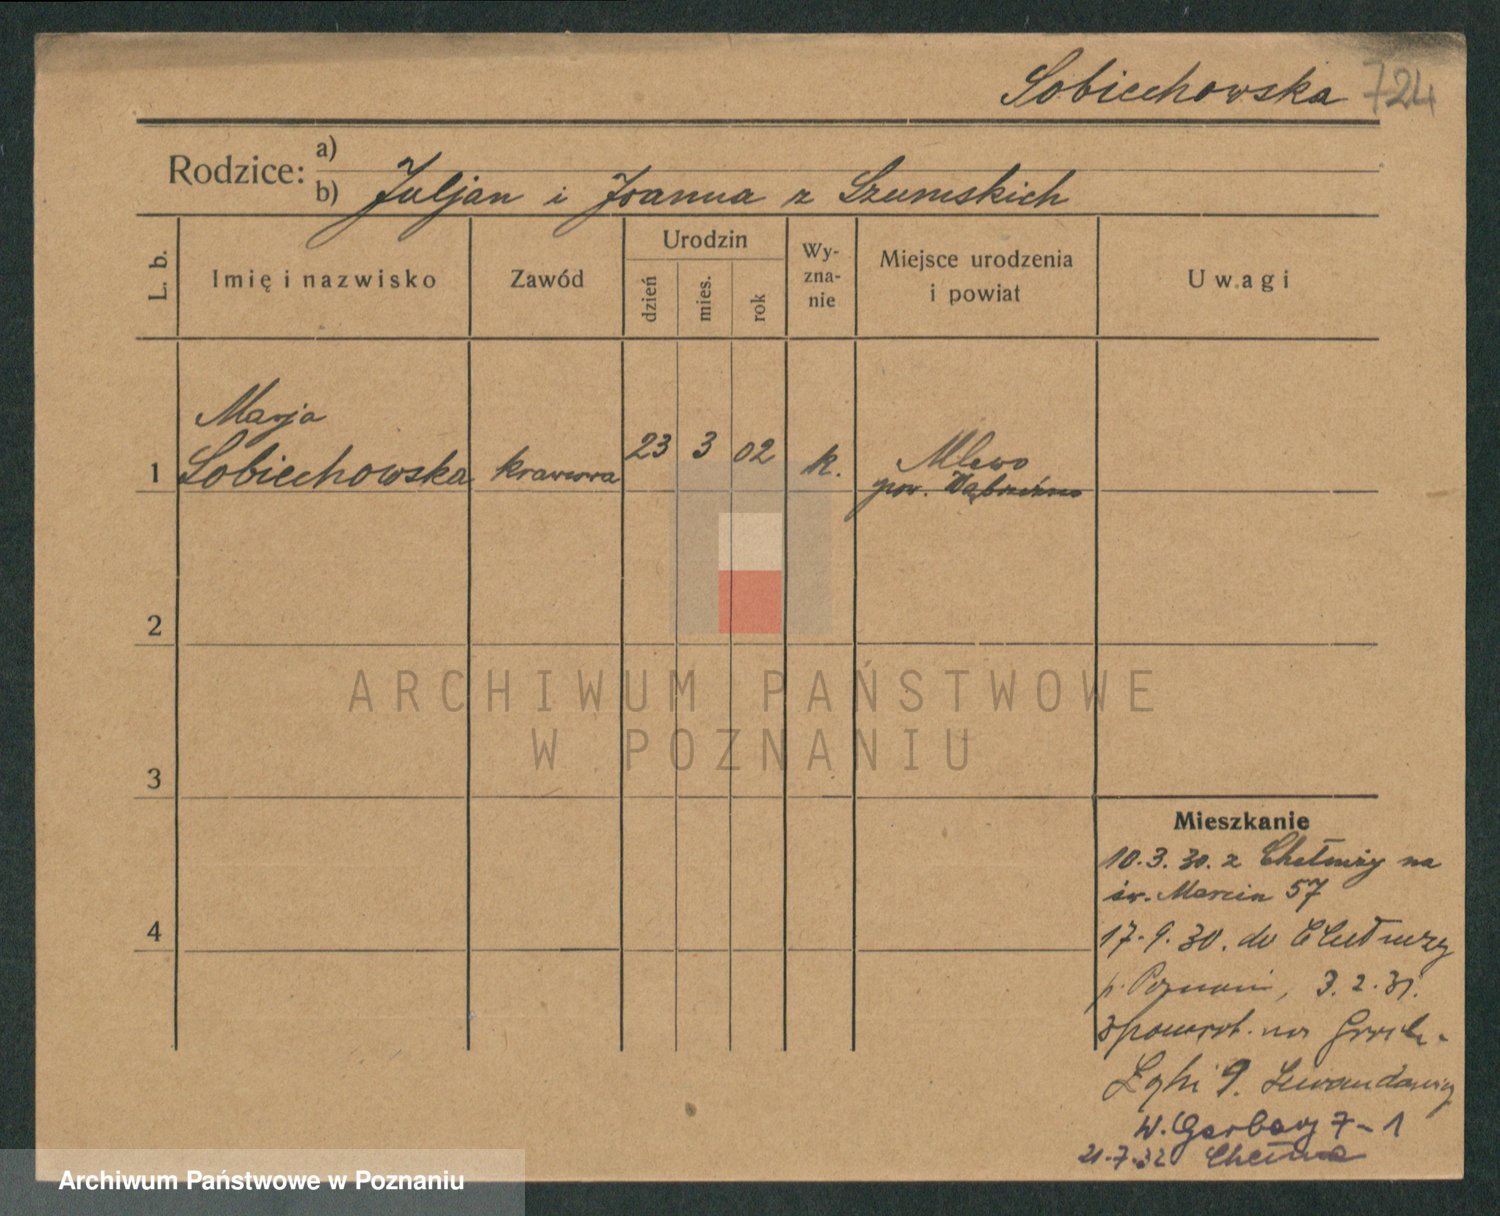 Sobiechowska 724
Rodzice: a)
b) Juljan i Joanna z Szumskich
L. b.
Imię i nazwisko
Zawód
Urodzin
dzień
mies.
rok
Wy-
zna-
nie
Miejsce urodzenia
i powiat
Uwagi
Marja
1 Sobiechowska krawcowa 23 3 02 k. Mlewo
pow. Wąbrzeźno
2
3
4
Mieszkanie
10.3.30. z Chełmży na
św. Marcin 57
17.9.30. do Chełmży
3.2.31.
zpowrot. na Grob.
9.
W. Garbary 7-1
21.7.32
ARCHIWUM PAŃSTWOWE
W POZNANIU
Archiwum Państwowe w Poznaniu